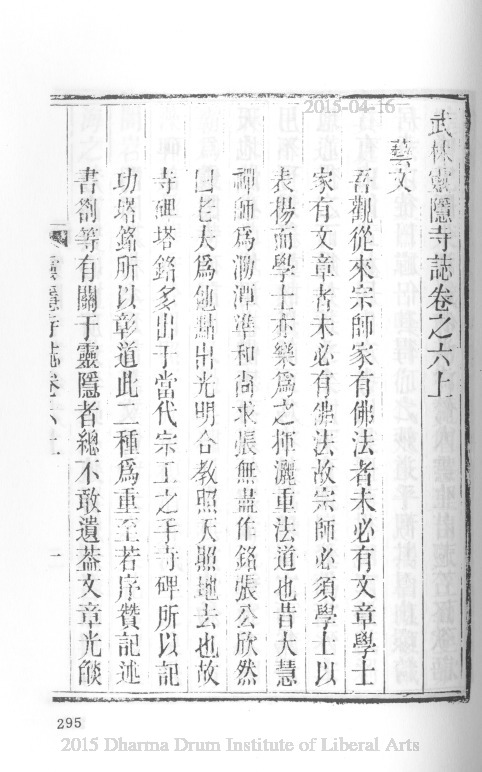 2015-04-16
武林靈隱寺誌卷之六上
藝文
吾觀從來宗師家有佛法者未必有文章學士
家有文章者未必有佛法故宗師必須學士以
表揚而學士亦樂爲之揮灑重法道也昔大慧
禪師爲泐潭準和尚求張無盡作銘張公欣然
曰老夫爲他點出光明令教照天照地去也故
寺碑塔銘多出于當代宗工之手寺碑所以記
功塔銘所以彰道此二種爲重至若序贊記述
書劄等有關于靈隱者總不敢遺葢文章光燄
靈隱寺誌卷六上
一
295
2015 Dharma Drum Institute of Liberal Arts